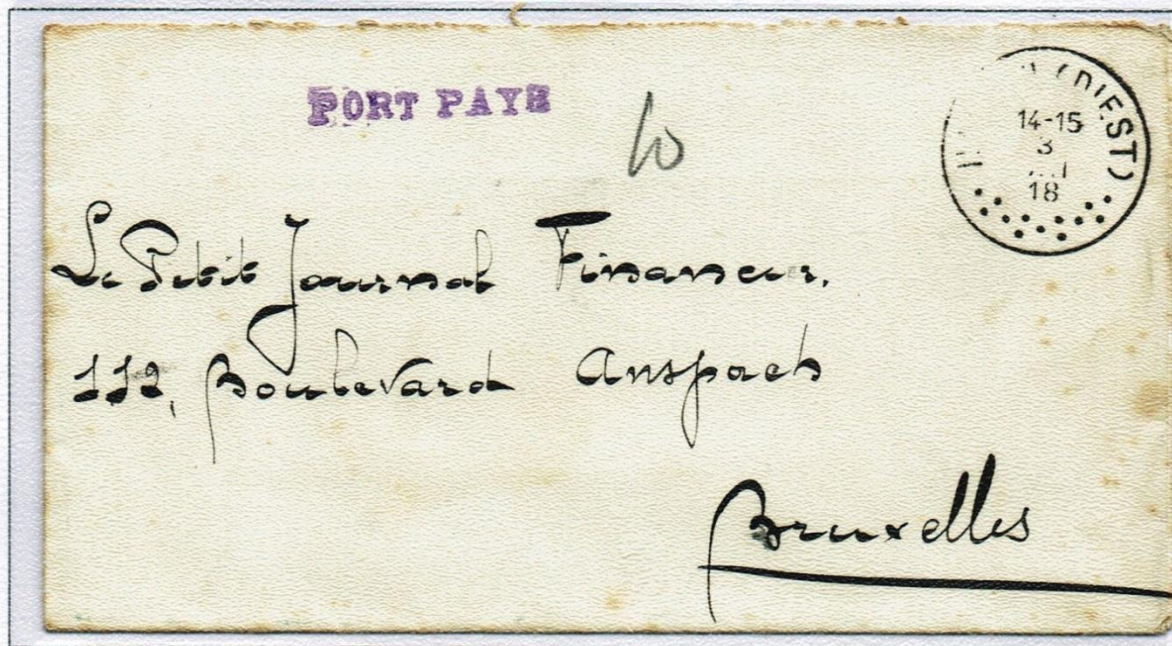 PORT PAYE
10
(DIEST)
14-15
3
18
Le Petit Journal Financier.
112, Boulevard Anspach
Bruxelles